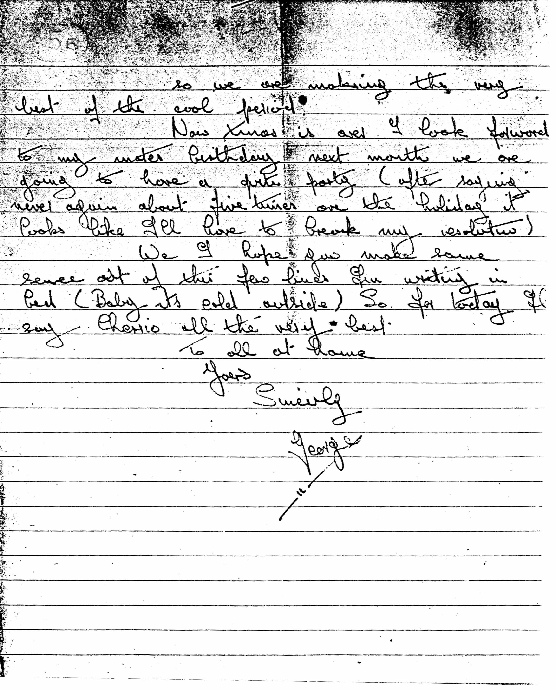 so we are making the very
best of the cool period.
Now Xmas is over I look forword
to my mates birthday next month we are
going to have a party (after saying
never again about five times on the holiday it
looks like I'll have to break my resolution)
We I hope you make some
sence out of this few lines I'm writing in
bed (Baby its cold outside) So for today I'll
say Cherrio all the very best.
To all at home
Yours
Sincerly
George